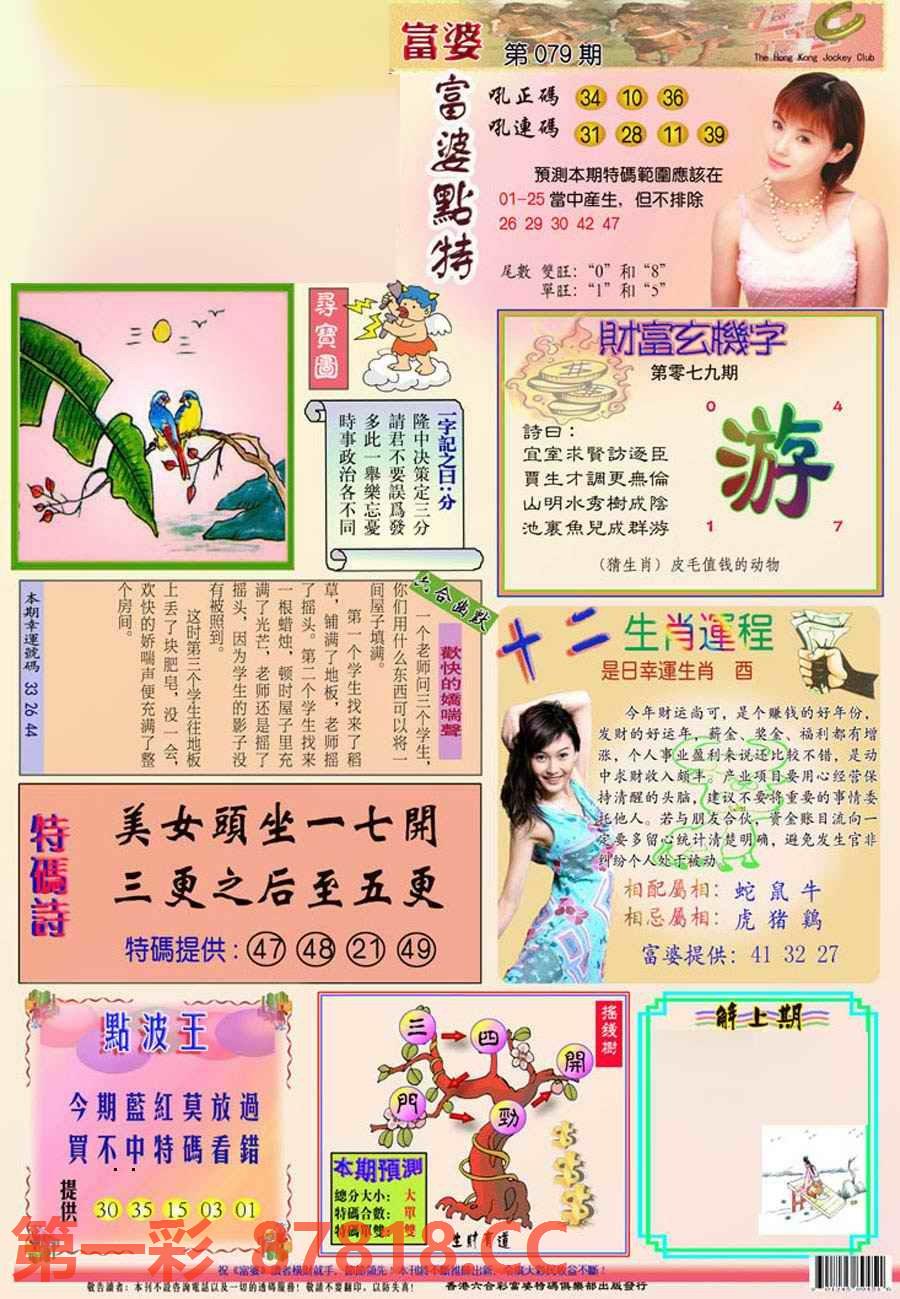 富婆 第079期
The Hong Kong Jockey Club
富婆點特
吼正碼 34 10 36
吼連碼 31 28 11 39
預測本期特碼範圍應該在
01-25當中産生，但不排除
26 29 30 42 47
尾數 雙旺：“0”和“8”
單旺：“1”和“5”
尋寶圖
一字記之曰：分
隆中决策定三分
請君不要誤爲發
多此一舉樂忘憂
時事政治各不同
財富玄機字
第零七九期
0 4
游
1 7
詩曰：
宜室求賢訪逐臣
賈生才調更無倫
山明水秀樹成陰
池裏魚兒成群游
（猜生肖）皮毛值钱的动物
六合幽默
歡快的嬌喘聲
一个老师问三个学生，
你们用什么东西可以将一
间屋子填满。
第一个学生找来了稻
草，铺满了地板，老师摇
了摇头。第二个学生找来
一根蜡烛，顿时屋子里充
满了光芒，老师还是摇了
摇头，因为学生的影子没
有被照到。
这时第三个学生往地板
上丢了块肥皂，没一会，
欢快的娇喘声便充满了整
个房间。
本期幸運號碼 33 26 44
十二生肖運程
是日幸運生肖 酉
今年财运尚可，是个赚钱的好年份，
发财的好运年，薪金、奖金、福利都有增
涨，个人事业盈利来说还比较不错，是动
中求财收入颇丰。产业项目要用心经营保
持清醒的头脑，建议不要将重要的事情委
托他人。若与朋友合伙，资金账目流向一
定要多留心统计清楚明确，避免发生官非
纠纷个人处于被动。
相配屬相：蛇 鼠 牛
相忌屬相：虎 猪 鷄
富婆提供：41 32 27
特碼詩
美女頭坐一七開
三更之后至五更
特碼提供：47 48 21 49
點波王
今期藍紅莫放過
買不中特碼看錯
提供 30 35 15 03 01
搖錢樹
三 四
門 勁 開
本期預測
總分大小：大
特碼合數：單
特碼單雙：雙
生財有道
解上期
第一彩 87818.CC
祝《富婆》讀者橫財就手，節節領先！本刊將不斷推陳出新，令廣大彩民收益不斷！
敬告讀者：本刊不設咨詢電話以及一切的透碼服務！敬請不要翻印，以防失真！
香港六合彩富婆特碼俱樂部出版發行